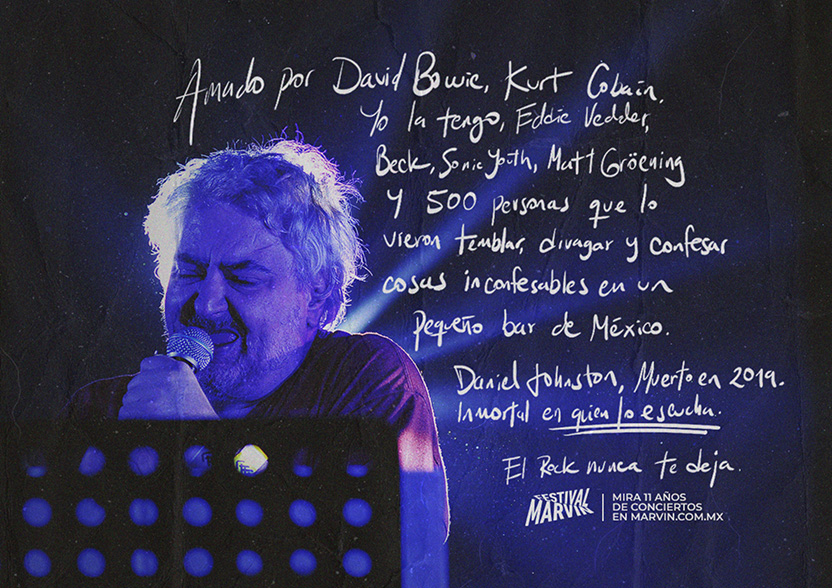 Amado por David Bowie, Kurt Cobain,
Yo la tengo, Eddie Vedder,
Beck, Sonic Youth, Matt Gröening
Y 500 personas que lo
vieron temblar, divagar y confesar
cosas inconfesables en un
pequeño bar de México.
Daniel Johnston, Muerto en 2019.
Inmortal en quien lo escucha.
El Rock nunca te deja.
FESTIVAL
MARVIN
MIRA 11 AÑOS
DE CONCIERTOS
EN MARVIN.COM.MX